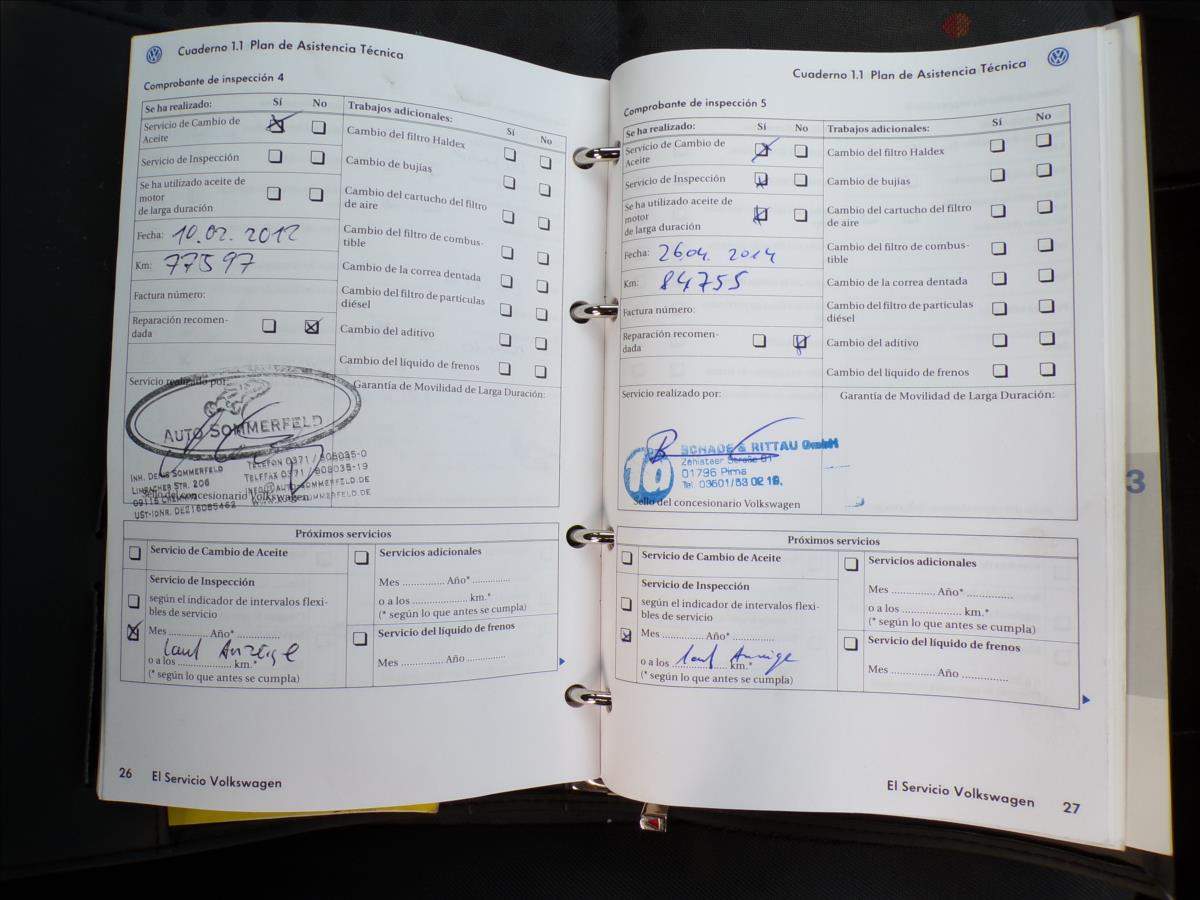 Cuaderno 1.1 Plan de Asistencia Técnica
Comprobante de inspección 4
Se ha realizado: Sí No
Servicio de Cambio de
Aceite
Servicio de Inspección
Se ha utilizado aceite de
motor
de larga duración
Fecha: 10.02.2012
Km: 77597
Factura número:
Reparación recomen-
dada
Trabajos adicionales: Sí No
Cambio del filtro Haldex
Cambio de bujías
Cambio del cartucho del filtro
de aire
Cambio del filtro de combus-
tible
Cambio de la correa dentada
Cambio del filtro de partículas
diésel
Cambio del aditivo
Cambio del líquido de frenos
Servicio realizado por:
AUTO SOMMERFELD
INH. DENIS SOMMERFELD
LIMBACHER STR. 206
09116 CHEMNITZ
UST-IDNR. DE216085462
TELEFON 0371 / 808035-0
TELEFAX 0371 / 808035-19
INFO@AUTO-SOMMERFELD.DE
WWW.AUTO-SOMMERFELD.DE
Sello del concesionario Volkswagen
Garantía de Movilidad de Larga Duración:
Próximos servicios
Servicio de Cambio de Aceite
Servicio de Inspección
según el indicador de intervalos flexi-
bles de servicio
Mes ............ Año* ............
laut Anzeige
o a los ................ km.*
(* según lo que antes se cumpla)
Servicios adicionales
Mes ............ Año* ............
o a los ................ km.*
(* según lo que antes se cumpla)
Servicio del líquido de frenos
Mes ............ Año ............
26 El Servicio Volkswagen
Cuaderno 1.1 Plan de Asistencia Técnica
Comprobante de inspección 5
Se ha realizado: Sí No
Servicio de Cambio de
Aceite
Servicio de Inspección
Se ha utilizado aceite de
motor
de larga duración
Fecha: 26.04. 2014
Km: 84755
Factura número:
Reparación recomen-
dada
Trabajos adicionales: Sí No
Cambio del filtro Haldex
Cambio de bujías
Cambio del cartucho del filtro
de aire
Cambio del filtro de combus-
tible
Cambio de la correa dentada
Cambio del filtro de partículas
diésel
Cambio del aditivo
Cambio del líquido de frenos
Servicio realizado por:
SCHADE & RITTAU GmbH
Zehistaer Straße 51
01796 Pirna
Tel. 03501/53 02 19.
Sello del concesionario Volkswagen
Garantía de Movilidad de Larga Duración:
Próximos servicios
Servicio de Cambio de Aceite
Servicio de Inspección
según el indicador de intervalos flexi-
bles de servicio
Mes ............ Año* ............
o a los laut Anzeige km.*
(* según lo que antes se cumpla)
Servicios adicionales
Mes ............ Año* ............
o a los ................ km.*
(* según lo que antes se cumpla)
Servicio del líquido de frenos
Mes ............ Año ............
El Servicio Volkswagen 27
3